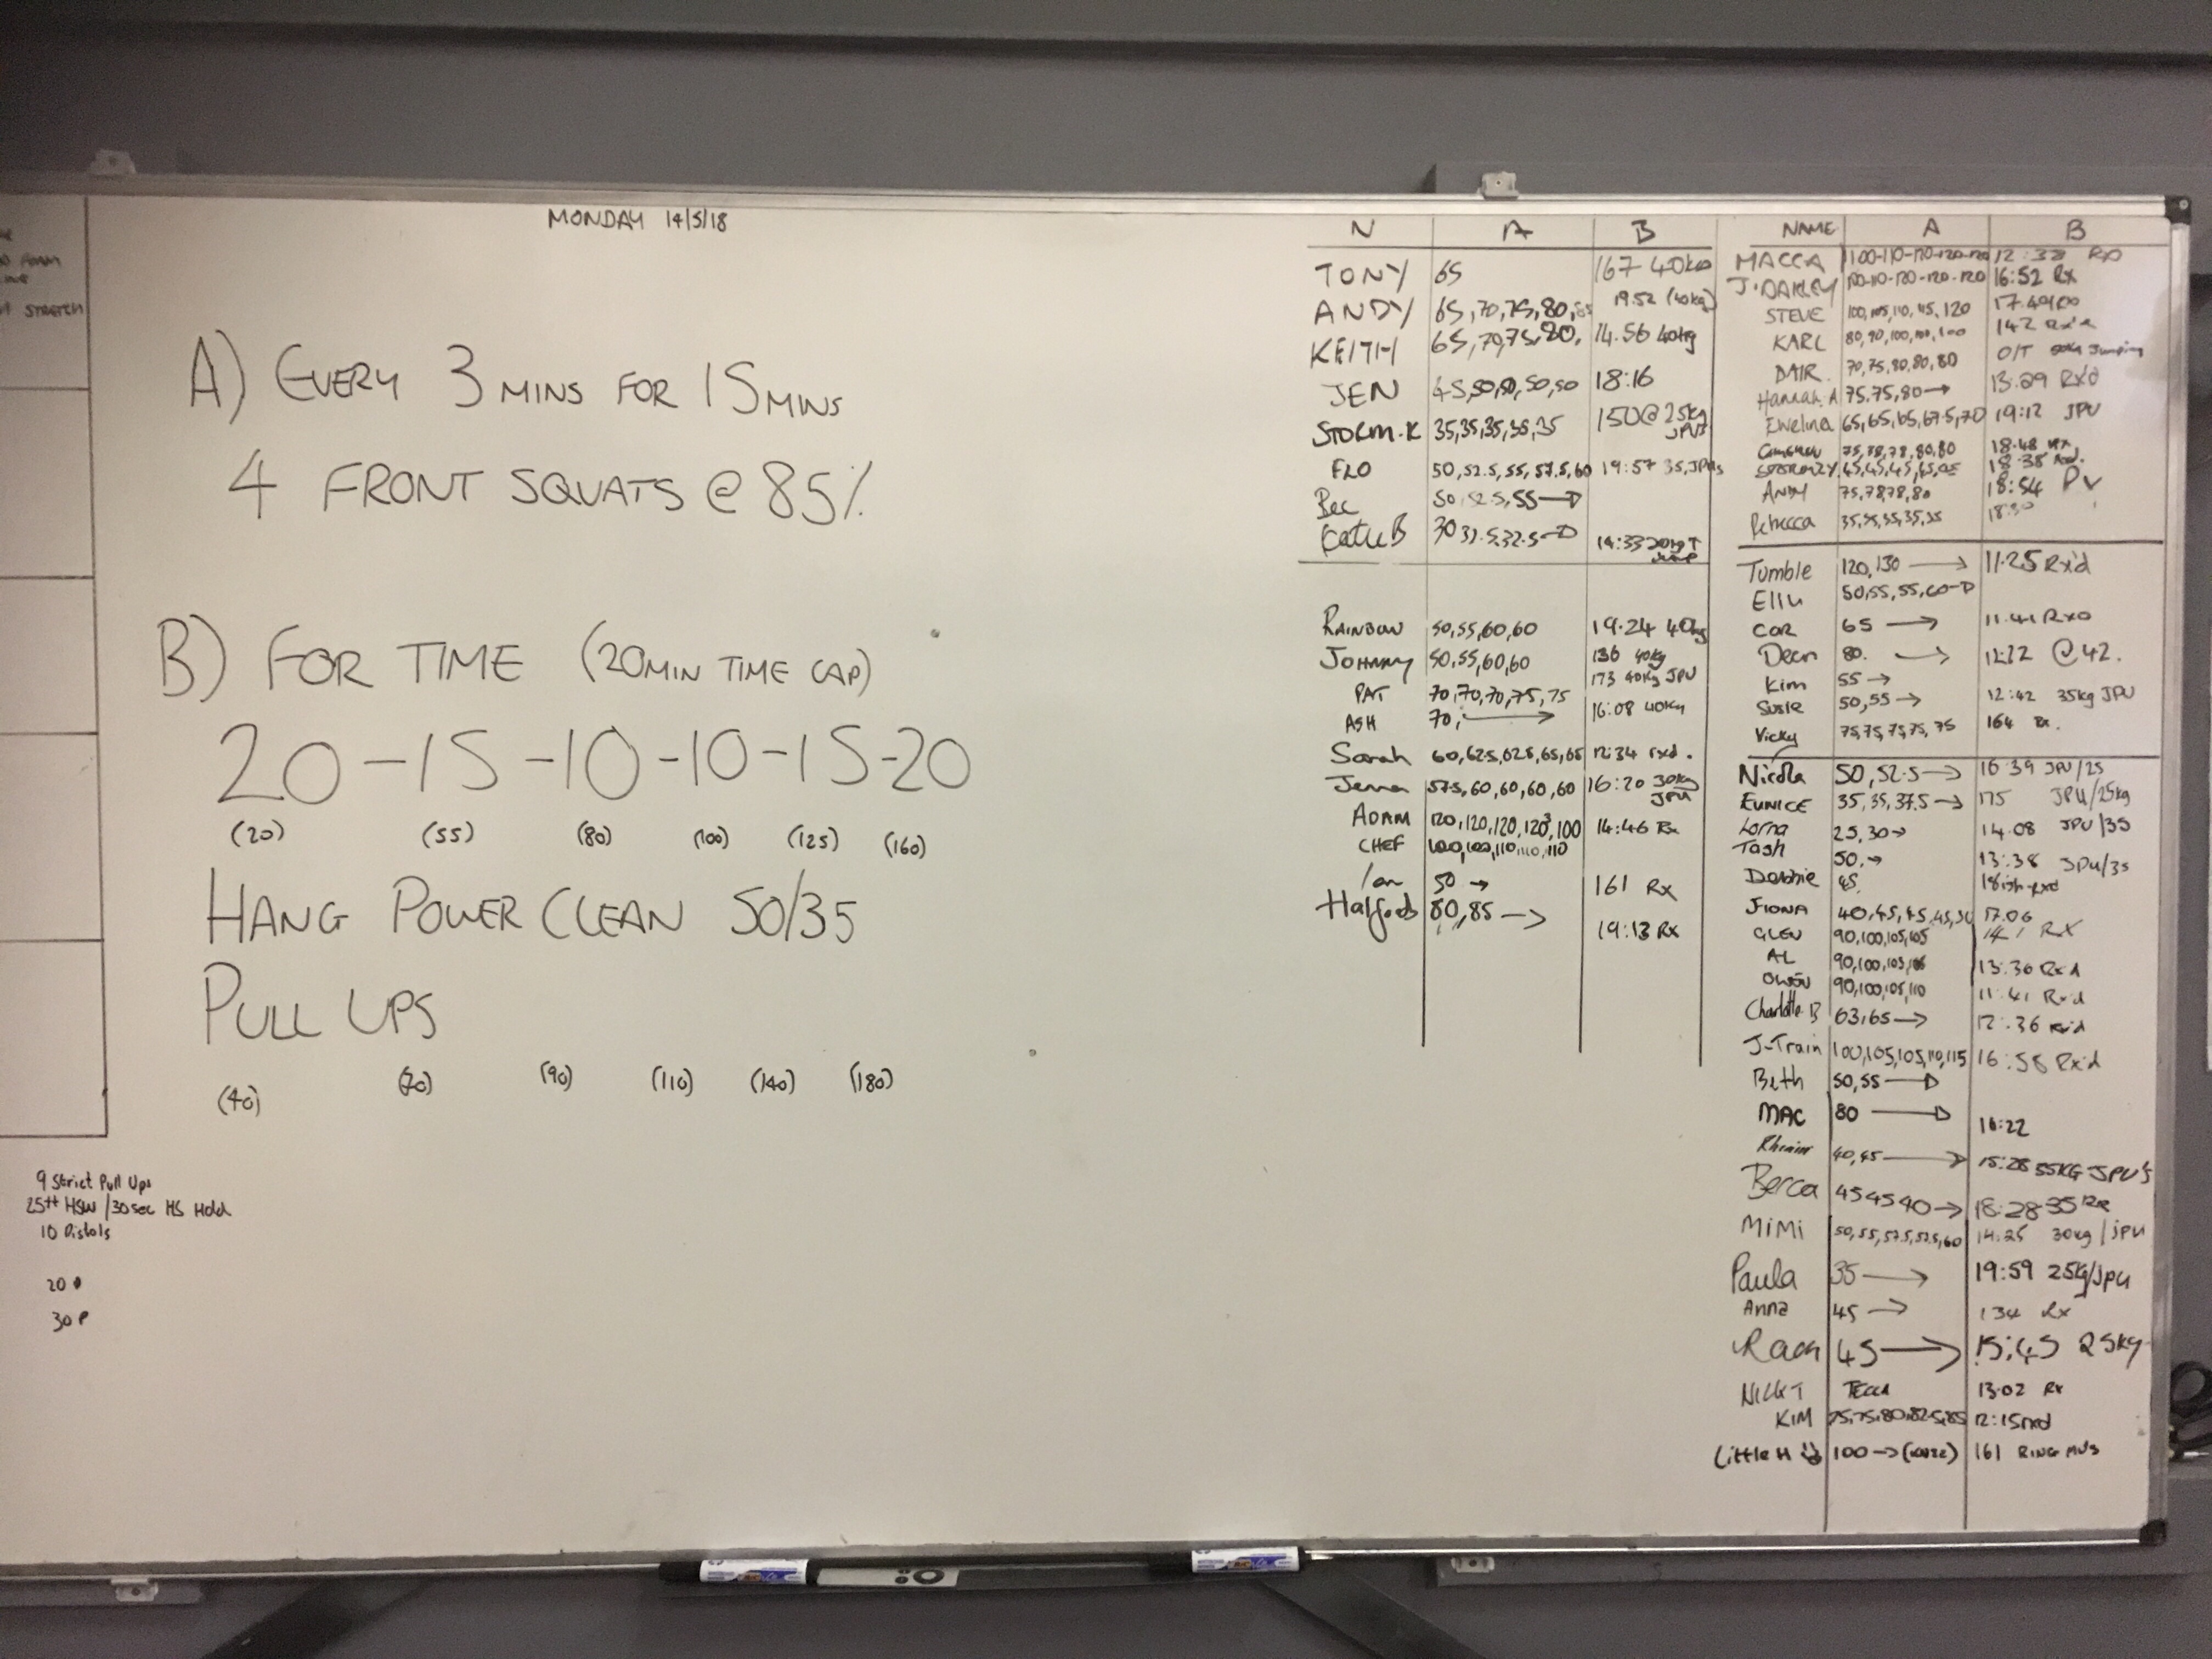 FOAM
STRETCH
MONDAY 14/5/18
A) EVERY 3 MINS FOR 15 MINS
4 FRONT SQUATS @ 85%
B) FOR TIME (20 MIN TIME CAP)
20 - 15 - 10 - 10 - 15 - 20
(20) (55) (80) (100) (125) (160)
HANG POWER CLEAN 50/35
PULL UPS
(40) (70) (90) (110) (140) (180)
9 Strict Pull Ups
25ft HSW /30sec HS Hold
10 Pistols
20
30 P
N A B
TONY 65 167 40kg
ANDY 65, 70, 75, 80, 85 19:52 (40kg)
KEITH 65, 70, 75, 80, 14.56 40kg
JEN 45, 50, 50, 50, 50 18:16
STORM.K 35, 35, 35, 35, 35 150 @ 25kg JPUs
FLO 50, 52.5, 55, 57.5, 60 19:57 35, JPUs
Bec 50, 52.5, 55 →
Katie B 30 32.5, 32.5 → 14:33 20kg
RAINBOW 50, 55, 60, 60 19.24 40kg
JOHNNY 50, 55, 60, 60 136 40kg
PAT 70, 70, 70, 75, 75 173 40kg JPU
ASH 70, → 16:08 40kg
Sarah 60, 62.5, 62.5, 65, 65 12:34 rxd.
Jenna 57.5, 60, 60, 60, 60 16:20 30kg JPU
ADAM 120, 120, 120, 120³, 100 14:46 Rx
CHEF 100, 100, 110, 110, 110
Ian 50 → 161 Rx
Halfords 80, 85 → 19:13 Rx
NAME A B
MACCA 100-110-120-120-120 12:38
J.OAKLEY 100-110-120-120-120 16:52 Rx
STEVE 100, 105, 110, 115, 120 17.49
KARL 80, 90, 100, 100, 100 142
70, 75, 80, 80, 80 O/T Jumping
Hannah.A 75, 75, 80 → 13:29 RX'd
Ewelina 65, 65, 65, 67.5, 70 19:12 JPU
Cameron 75, 78, 78, 80, 80 18:48 RX
STORMZY 45, 45, 45, 45, 18:38
ANDY 75, 78, 78, 80 18:54
Rebecca 35, 35, 35, 35, 35 18:50
Tumble 120, 130 → 11.25 Rx'd
50, 55, 55, 60 →
65 → 11.41
Dean 80. → @ 42.
Kim 55 →
Susie 50, 55 → 12:42 35kg JPU
Vicky 75, 75, 75, 75, 75 164 Rx.
Nicola 50, 52.5 → 16:39 JPU/25
EUNICE 35, 35, 37.5 → 175 JPU/25kg
Lorna 25, 30 → 14.08 JPU/35
Tash 50. → 13:38 JPU/35
Debbie 45. 18ish-rxd
FIONA 40, 45, 45, 45, 50 17.06
GLEN 90, 100, 105, 105 141 RX
AL 90, 100, 105, 13:30 Rxd
OWEN 90, 100, 105, 110 11:41 Rx'd
Charlotte B 63, 65 → 12:36 Rx'd
J-Train 100, 105, 105, 110, 115 16:58 Rx'd
Beth 50, 55 →
MAC 80 → 16:22
40, 45 → 15:28 JPU'S
Becca 45 45 40 → 18:28 35 Rx
MiMi 50, 55, 57.5, 57.5, 60 14:25 30kg / JPU
Paula 35 → 19:59 25kg/JPU
Anna 45 → 134 Rx
45 → 15:45 25kg
NICKT 13.02 Rx
KIM 75, 75, 80, 82.5, 85 12:15 rxd
Little H 100 → 161 RING MUs